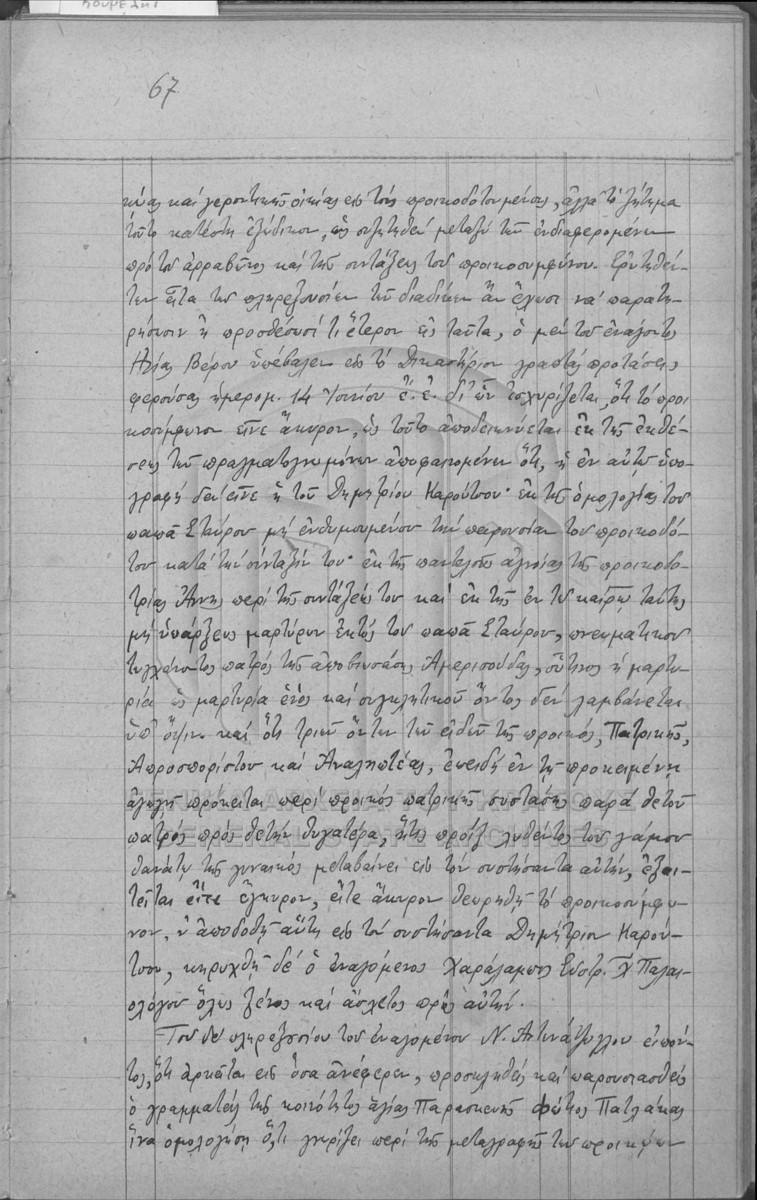 67
καὶ γεροντικῆς οἰκίας εἰς τοὺς προικοδοτουμένους, ἀλλὰ τὸ ζήτημα
τοῦτο κατέστη ἐξώδικον, ὡς συζητηθὲν μεταξὺ τῶν ἐνδιαφερομένων
πρὸ τοῦ ἀρραβῶνος καὶ τῆς συντάξεως τοῦ προικοσυμφώνου. Ἐρωτηθέν-
των εἶτα τῶν πληρεξουσίων τῶν διαδίκων ἂν ἔχωσι νὰ παρατη-
ρήσωσιν ἢ προσθέσωσί τι ἕτερον εἰς ταῦτα, ὁ μὲν τοῦ ἐνάγοντος
Ἠλίας Βέρου ὑπέβαλεν εἰς τὸ Δικαστήριον γραπτὰς προτάσεις
φερούσας ἡμερομ. 14 Ἰουνίου ἐ. ἔ. δι' ὧν ἰσχυρίζεται, ὅτι τὸ προι
κοσύμφωνον εἶνε ἄκυρον, ὡς τοῦτο ἀποδεικνύεται ἐκ τῆς ἐκθέ-
σεως τῶν πραγματογνωμόνων ἀποφαινομένων ὅτι, ἡ ἐν αὐτῷ ὑπο-
γραφὴ δὲν εἶνε ἡ τοῦ Δημητρίου Καρούτσου· ἐκ τῆς ὁμολογίας τοῦ
παπᾶ Σταύρου μὴ ἐνθυμουμένου τὴν παρουσίαν τοῦ προικοδό-
του κατὰ τὴν σύνταξίν του· ἐκ τῆς παντελοῦς ἀγνοίας τῆς προικοδο-
τρίας Ἄννης περὶ τῆς συντάξεώς του καὶ ἐκ τῆς ἐν τῷ καιρῷ ταύτης
μὴ ὑπάρξεως μαρτύρων ἐκτὸς τοῦ παπᾶ Σταύρου, πνευματικοῦ
τυγχάνοντος πατρὸς τῆς ἀποβιωσάσης Ἀμερισούδας, οὗτινος ἡ μαρτυ-
ρία ὡς μαρτυρία ἑνὸς καὶ συγκλητικοῦ ὄντος δὲν λαμβάνεται
ὑπ' ὄψιν καὶ ὅτι τριῶν ὄντων τῶν εἰδῶν τῆς προικός, Πατρικῆς,
Ἀπροσπορίστου καὶ Ἀναληπτέας, ἐπειδὴ ἐν τῇ προκειμένῃ
ἀγωγῇ πρόκειται περὶ προικὸς πατρικῆς συστάσης παρὰ θετοῦ
πατρὸς πρὸς θετὴν θυγατέρα, ἥτις προὶξ λυθέντος τοῦ γάμου
θανάτῳ τῆς γυναικὸς μεταβαίνει εἰς τὸν συστήσαντα αὐτήν, ἐξαι-
τεῖται εἴτε ἔγκυρον, εἴτε ἄκυρον θεωρηθῇ τὸ προικοσύμφω-
νον, ν' ἀποδοθῇ αὕτη εἰς τὸν συστήσαντα Δημήτριον Καρού-
τσου, κηρυχθῇ δὲ ὁ ἐναγόμενος Χαράλαμπος Εὐστρ. Χ" Παλαι-
ολόγου ὅλως ξένος καὶ ἄσχετος πρὸς αὐτήν.
Τοῦ δὲ πληρεξουσίου τοῦ ἐναγομένου Ν. Ἀτζιν εἰπόν-
τος, ὅτι ἀρκεῖται εἰς ὅσα ἀνέφερεν, προσκληθεὶς καὶ παρουσιασθεὶς
ὁ γραμματεὺς τῆς κοινότητος ἁγίας Παρασκευῆς Φώτιος Πατλάκας
ἵνα ὁμολογήσῃ ὅ,τι γνωρίζει περὶ τῆς μεταγραφῆς τῶν προικῴων